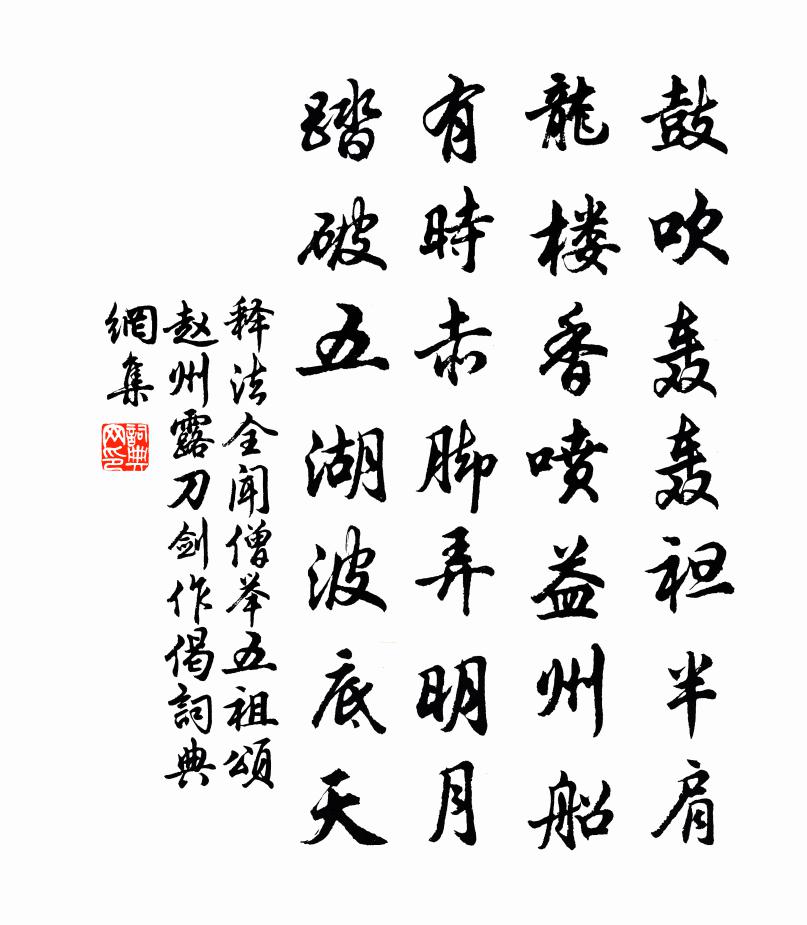 鼓吹轰轰袒半肩
龍楼香噴益州船
有時赤脚弄明月
踏破五湖波底天
释法全闻僧举五祖頌
赵州露刀剑作偈詞典
網集
詞典网印